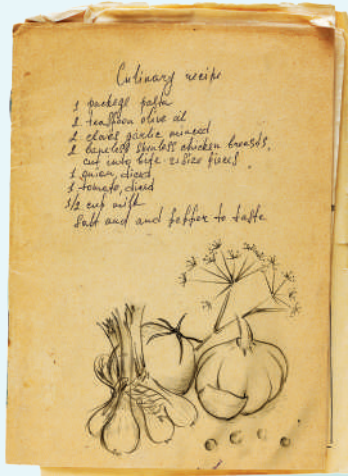 Culinary recipe
1 package pasta
2 teaspoon olive oil
2 cloves garlic minced
2 boneless skinless chicken breasts,
cut into bite-size pieces
1 onion, diced
1 tomato, diced
1/2 cup milk
Salt and and pepper to taste